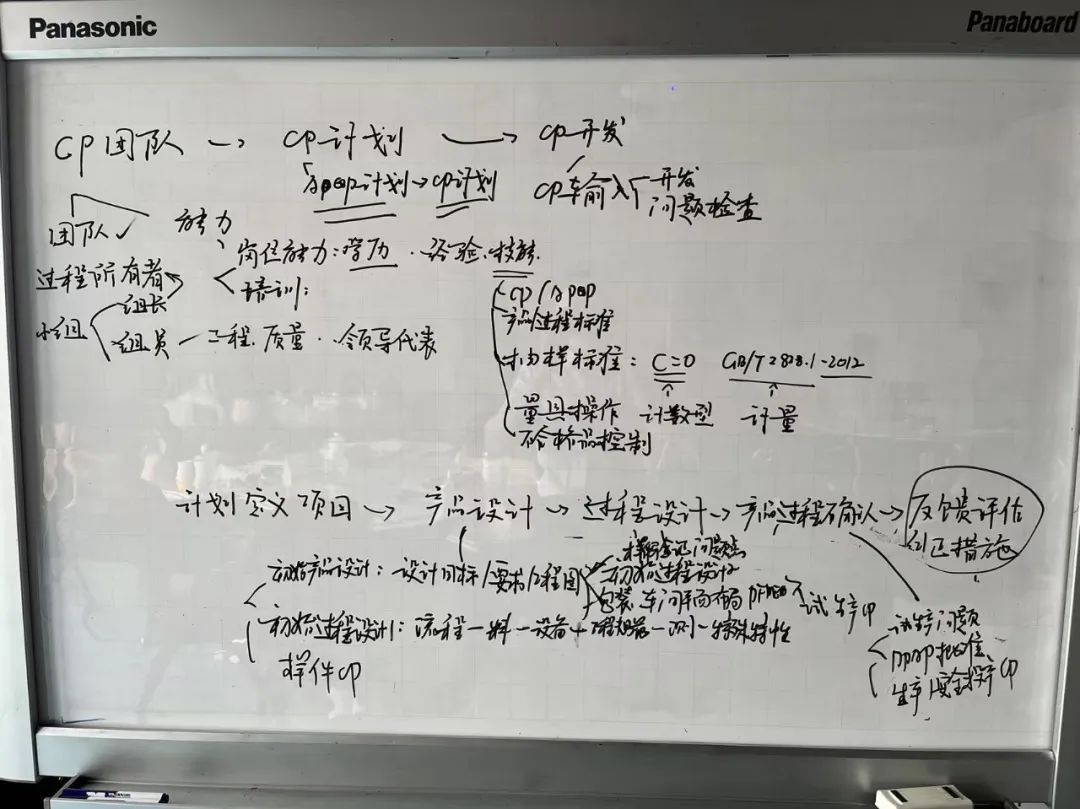 Panasonic
Panaboard
CP团队 → CP计划 → CP开发
APQP计划→CP计划
CP输入 开发
问题检查
团队✓ 能力
岗位能力:学历·经验·技能.
培训:
过程所有者
小组 组长
组员 — 工程.质量··领导代表
CP/APQP
产品过程标准
抽样标准: C=0 GB/T2828.1-2012
量具操作 计数型 计量
不合格品控制
计划定义项目 → 产品设计 → 过程设计 → 产品过程确认 → 反馈评估
纠正措施
初始产品设计: 设计目标/要求/工程图
样件验证问题点
初始过程设计
包装 车间平面布局 PFMEA 试生产CP
初始过程设计: 流程-料-设备+ -测-特殊特性
样件CP
试生产问题
PPAP批准
生产/安全投产CP